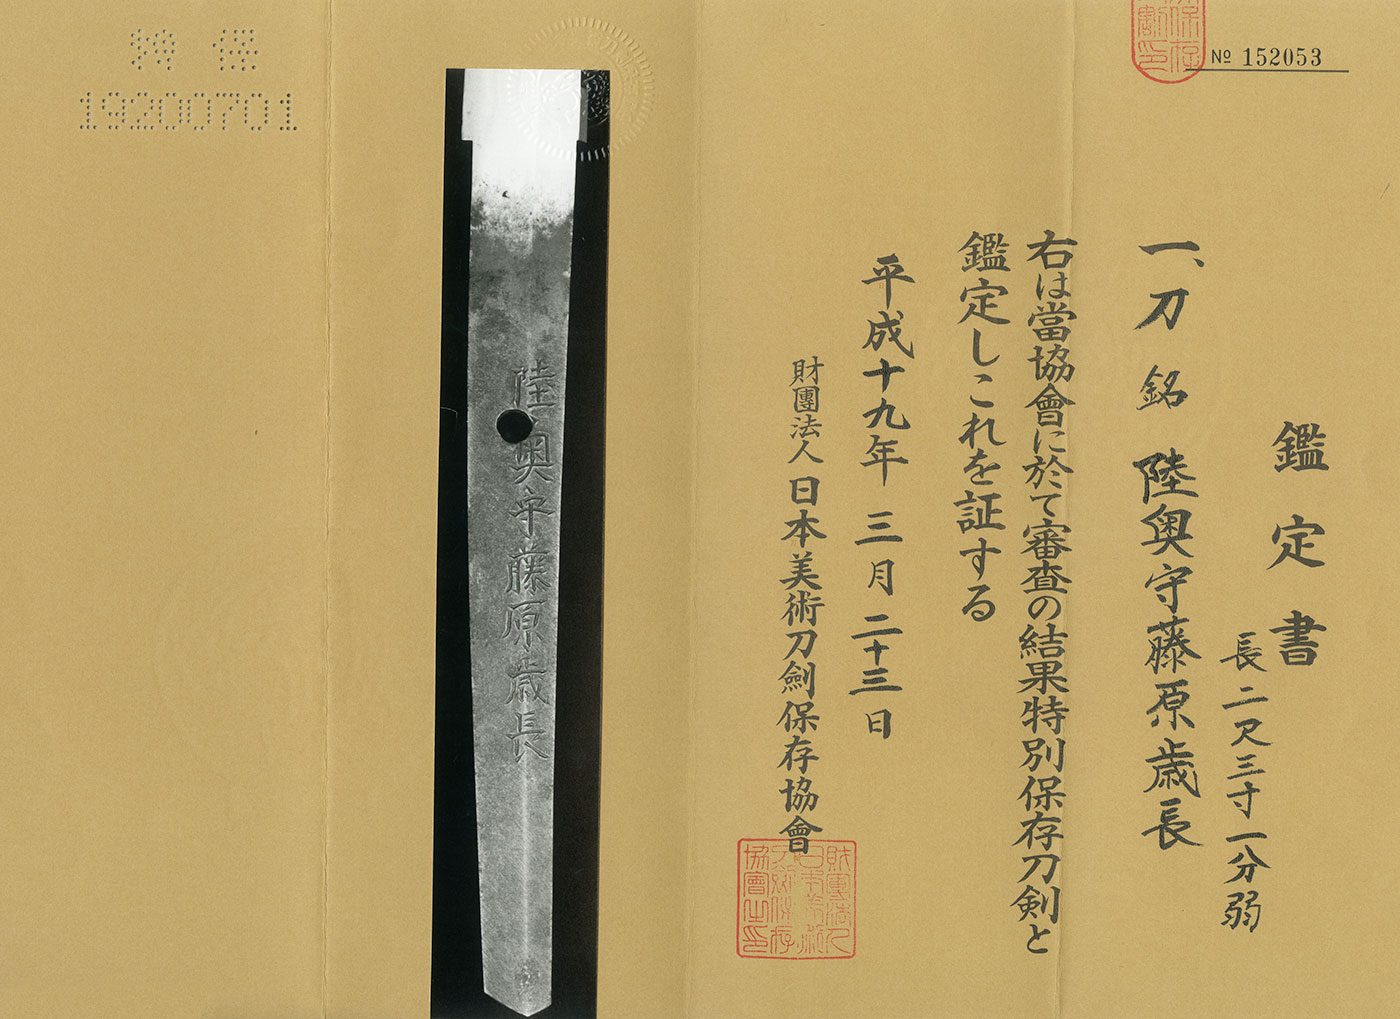 № 152053
鑑定書
長二尺三寸一分弱
一、刀 銘 陸奥守藤原歳長
右は當協會に於て審査の結果特別保存刀剣と
鑑定しこれを証する
平成十九年三月二十三日
財團法人日本美術刀劍保存協會
財團法人
日本美術
刀劍保存
協會之印
陸奥守藤原歳長
特保
19200701